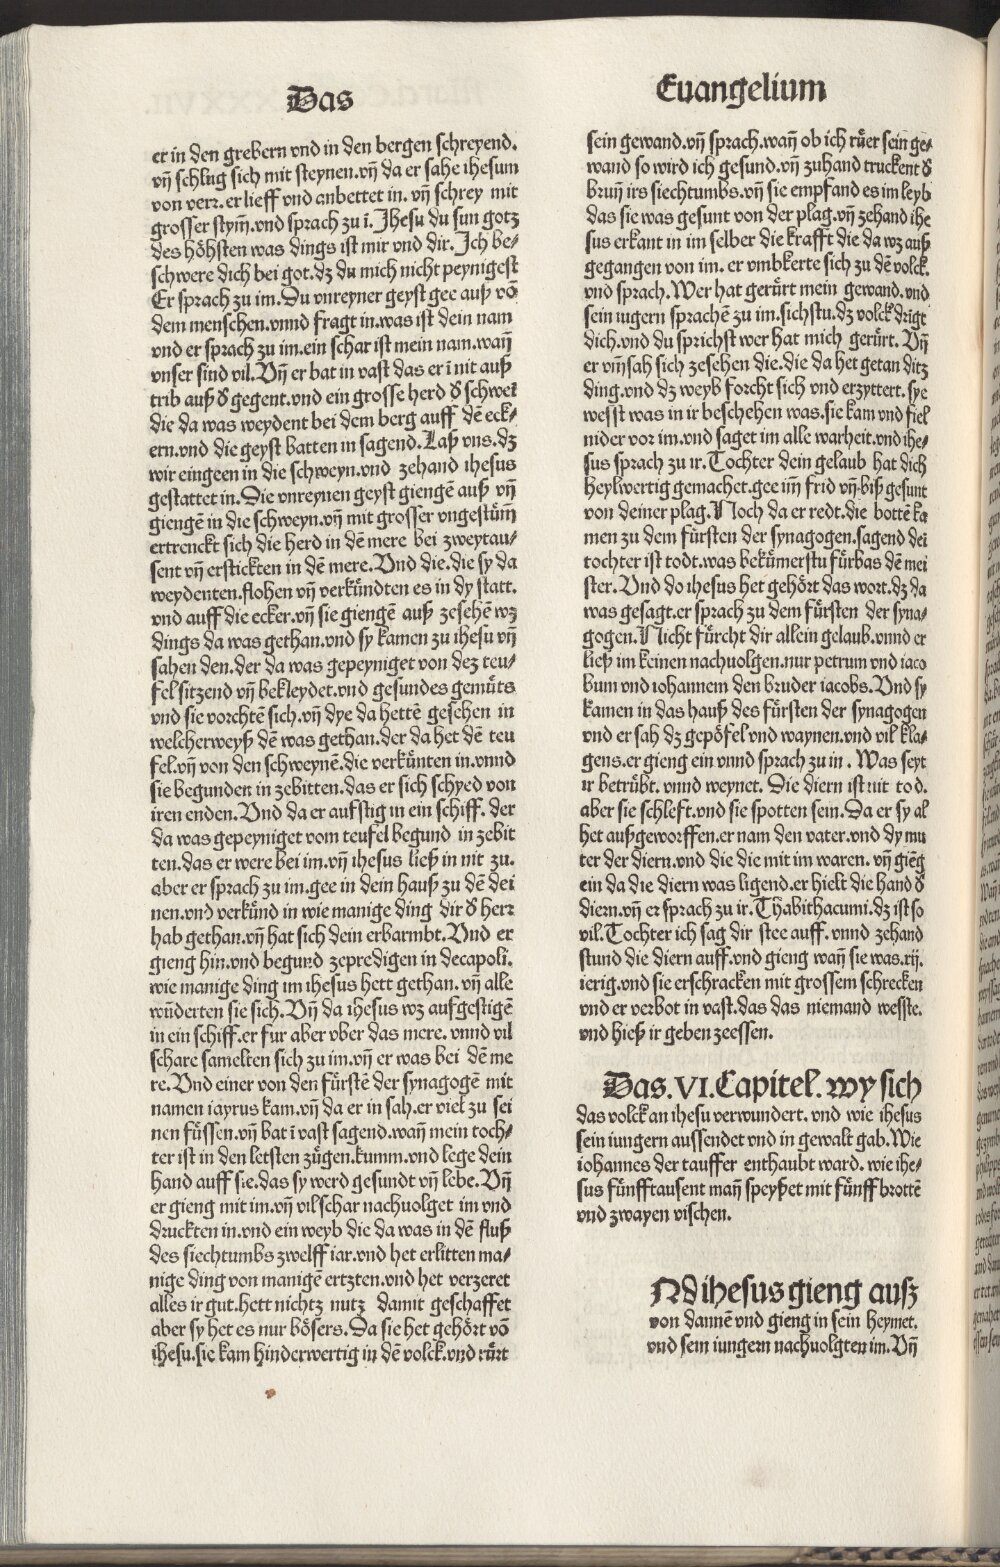 Das
Euangelium
er in den grebern vnd in den bergen schreyend.
vñ schlug sich mit steynen.vñ da er sahe ihesum
von verr.er lieff vnd anbettet in.vñ schrey mit
grosser stym̄.vnd sprach zu ī.Jhesu du sun gotz
des hoͤhsten was dings ist mir vnd dir.Ich be⸗
schwere dich bei got.dz du mich nicht peynigest
Er sprach zu im.Du vnreyner geyst gee auß võ
dem menschen.vnnd fragt in.was ist dein nam
vnd er sprach zu im.ein schar ist mein nam.wañ
vnser sind vil.Vñ er bat in vast das er ī nit auß
trib auß ð gegent.vnd ein grosse herd ð schwei
die da was weydent bei dem berg auff dē eck⸗
ern.vnd die geyst batten in sagend.Laß vns.dz
wir eingeen in die schweyn.vnd zehand ihesus
gestattet in.Die vnreynen geyst giengē auß vñ
giengē in die schweyn.vñ mit grosser vngestuͤm̄
ertrenckt sich die herd in dē mere bei zweytau⸗
sent vñ erstickten in dē mere.Vnd die.die sy da
weydenten.flohen vñ verkuͤndten es in dy statt.
vnd auff die ecker.vñ sie giengē auß zesehē wz
dings da was gethan.vnd sy kamen zu ihesu vñ
sahen den.der da was gepeyniget von dez teu⸗
fel sitzend vñ bekleydet.vnd gesundes gemuͤts
vnd sie vorchtē sich.vñ dye da hettē gesehen in
welcherweyß dē was gethan.der da het dē teu
fel.vñ von den schweynē.die verkuͤnten in.vnnd
sie begunden in zebitten.das er sich schyed von
iren enden.Vnd da er aufstig in ein schiff. der
da was gepeyniget vom teufel begund in zebit
ten.das er were bei im.vñ ihesus ließ in nit zu.
aber er sprach zu im.gee in dein hauß zu dē dei
nen.vnd verkuͤnd in wie manige ding dir ð herr
hab gethan.vñ hat sich dein erbarmbt.Vnd er
gieng hin.vnd begund zepredigen in decapoli.
wie manige ding im ihesus hett gethan.vñ alle
wūderten sie sich.Vñ da ihesus wz aufgestigē
in ein schiff.er fur aber vber das mere.vnnd vil
schare samelten sich zu im.vñ er was bei dē me
re.Vnd einer von den fuͤrstē der synagogē mit
namen iayrus kam.vñ da er in sah.er viel zu sei
nen fuͤssen.vñ bat ī vast sagend.wañ mein toch⸗
ter ist in den letsten zuͤgen.kumm.vnd lege dein
hand auff sie.das sy werd gesundt vñ lebe.Vñ
er gieng mit im.vñ vil schar nachuolget im vnd
druckten in.vnd ein weyb die da was in dē fluß
des siechtumbs zwelff iar.vnd het erlitten ma⸗
nige ding von manigē ertzten.vnd het verzeret
alles ir gut.hett nichtz nutz damit geschaffet
aber sy het es nur boͤsers.Da sie het gehoͤrt võ
ihesu.sie kam hinderwertig in dē volck.vnd ruͤrt
sein gewand.vñ sprach.wañ ob ich ruͤer sein ge⸗
wand so wird ich gesund.vñ zuhand truckent ð
bruñ irs siechtumbs.vñ sie empfand es im leyb
das sie was gesunt von der plag.vñ zehand ihe
sus erkant in im selber die krafft die da wz auß
gegangen von im. er vmbkerte sich zu dē volck.
vnd sprach.Wer hat geruͤrt mein gewand.vnd
sein iugern sprachē zu im.sichstu.dz volck drīgt
dich.vnd du sprichst wer hat mich geruͤrt. Vñ
er vm̄sah sich zesehen die.die da het getan ditz
ding.vnd dz weyb forcht sich vnd erzyttert.sye
wesst was in ir beschehen was.sie kam vnd fiel
nider vor im.vnd saget im alle warheit.vnd ihe⸗
sus sprach zu ir.Tochter dein gelaub hat dich
heylwertig gemachet.gee im̄ frid vñ biß gesunt
von deiner plag.Noch da er redt.die bottē ka
men zu dem fuͤrsten der synagogen.sagend dei
tochter ist todt.was bekuͤmerstu fuͤrbas dē mei
ster.Vnd do ihesus het gehoͤrt das wort.dz da
was gesagt.er sprach zu dem fuͤrsten der syna⸗
gogen.Nicht fuͤrcht dir allein gelaub.vnnd er
ließ im keinen nachuolgen.nur petrum vnd iaco
bum vnd iohannem den bruder iacobs.Vnd sy
kamen in das hauß des fuͤrsten der synagogen
vnd er sah dz gepoͤfel vnd waynen.vnd vil kla⸗
gens.er gieng ein vnnd sprach zu in . Was seyt
ir betruͤbt. vnnd weynet. Die diern ist nit tod.
aber sie schleft.vnd sie spotten sein.Da er sy al
het außgeworffen.er nam den vater.vnd dy mu
ter der diern.vnd die die mit im waren. vñ giēg
ein da die diern was ligend.er hielt die hand ð
diern.vñ er sprach zu ir.Thabithacumi.dz ist so
vil.Tochter ich sag dir stee auff. vnnd zehand
stund die diern auff.vnd gieng wañ sie was.xij.
ierig.vnd sie erschracken mit grossem schrecken
vnd er verbot in vast.das das niemand wesste.
vnd hieß ir geben zeessen.
Das.VI.Capitel.wy sich
das volck an ihesu verwundert. vnd wie ihesus
sein iungern aussendet vnd in gewalt gab.Wie
iohannes der tauffer enthaubt ward. wie ihe⸗
sus fuͤnfftausent mañ speyßet mit fuͤnff brottē
vnd zwayen vischen.
Nd ihesus gieng auß
von dannē vnd gieng in sein heymet.
vnd sein iungern nachuolgten im.Vñ